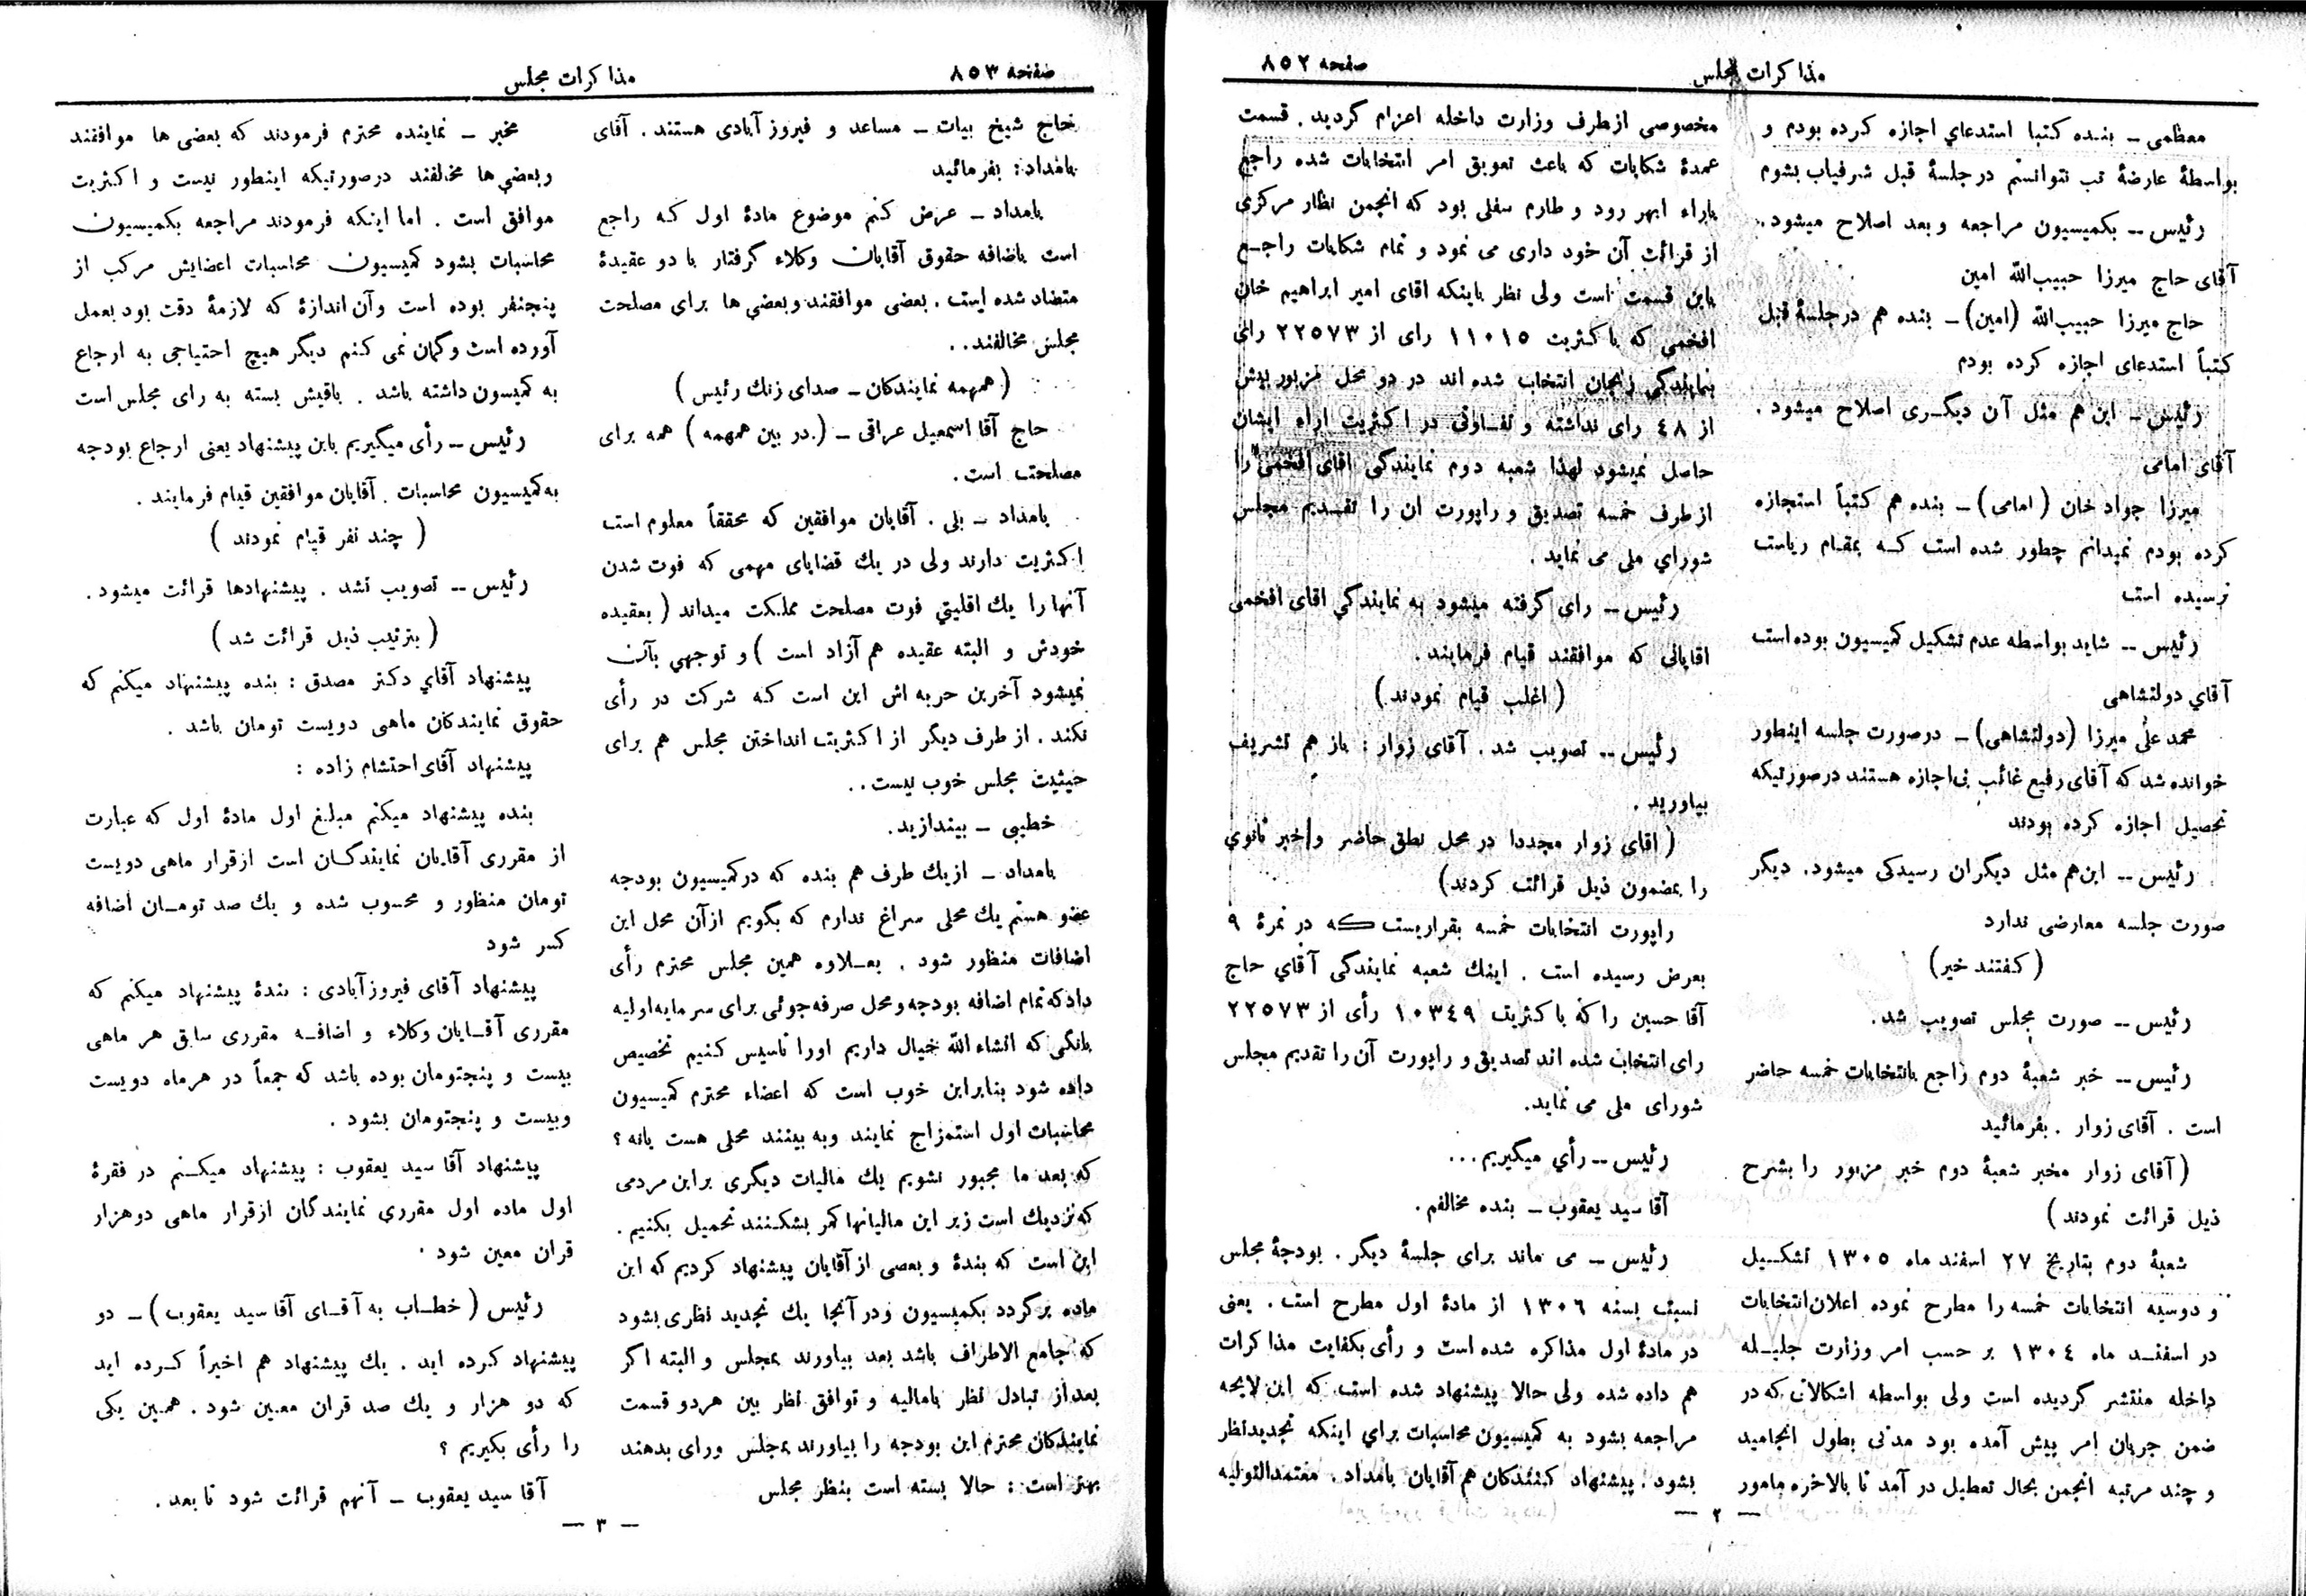 مذاکرات مجلس
صفحه ۸۵۲
معظمی ــ بنده کتبا استدعای اجازه کرده بودم و
بواسطهٔ عارضهٔ تب نتوانستم در جلسهٔ قبل شرفیاب بشوم
رئیس ــ بکمیسیون مراجعه و بعد اصلاح میشود.
آقای حاج میرزا حبیب‌الله امین
حاج میرزا حبیب‌الله (امین) ــ بنده هم در جلسهٔ قبل
کتباً استدعای اجازه کرده بودم
رئیس ــ این هم مثل آن دیگری اصلاح میشود.
آقای امامی
میرزا جواد خان (امامی) ــ بنده هم کتباً استجازه
کرده بودم نمیدانم چطور شده است که بمقام ریاست
نرسیده است
رئیس ــ شاید بواسطه عدم تشکیل کمیسیون بوده است
آقای دولتشاهی
محمد علی میرزا (دولتشاهی) ــ در صورت جلسه اینطور
خوانده شد که آقای رفیع غائب بی‌اجازه هستند در صورتیکه
تحصیل اجازه کرده بودند
رئیس ــ این هم مثل دیگران رسیدگی میشود. دیگر
صورت جلسه معارضی ندارد
(گفتند خیر)
رئیس ــ صورت مجلس تصویب شد.
رئیس ــ خبر شعبهٔ دوم راجع بانتخابات خمسه حاضر
است . آقای زوار . بفرمائید
(آقای زوار مخبر شعبهٔ دوم خبر مزبور را بشرح
ذیل قرائت نمودند)
شعبهٔ دوم بتاریخ ۲۷ اسفند ماه ۱۳۰۵ تشکیل
و دوسیه انتخابات خمسه را مطرح نموده اعلان انتخابات
در اسفند ماه ۱۳۰٤ بر حسب امر وزارت جلیله
داخله منتشر گردیده است ولی بواسطه اشکالاتی که در
ضمن جریان امر پیش آمده بود مدتی بطول انجامید
و چند مرتبه انجمن بحال تعطیل در آمد تا بالاخره مامور
مخصوصی از طرف وزارت داخله اعزام گردید . قسمت
عمدهٔ شکایات که باعث تعویق امر انتخابات شده راجع
باراء ابهر رود و طارم سفلی بود که انجمن نظار مرکزی
از قرائت آن خود داری می نمود و تمام شکایات راجع
باین قسمت است ولی نظر باینکه اقای امیر ابراهیم خان
افخمی که با کثریت ۱۱۰۱۵ رای از ۲۲۵۷۳ رای
بنمایندگی زنجان انتخاب شده اند در دو محل مزبور بیش
از ٤۸ رای نداشته و تفاوتی در اکثریت اراء ایشان
حاصل نمیشود لهذا شعبه دوم نمایندگی اقای افخمی را
از طرف خمسه تصدیق و راپورت ان را تقدیم مجلس
شورای ملی می نماید .
رئیس ــ رای گرفته میشود به نمایندگی اقای افخمی
اقایانی که موافقند قیام فرمایند.
(اغلب قیام نمودند)
رئیس ــ تصویب شد . آقای زوار : باز هم تشریف
بیاورید.
(اقای زوار مجددا در محل نطق حاضر و خبر ثانوی
را بمضمون ذیل قرائت کردند)
راپورت انتخابات خمسه بقراریست که در نمرهٔ ۹
بعرض رسیده است . اینك شعبه نمایندگی آقای حاج
آقا حسین را که با کثریت ۱۰۳٤۹ رأی از ۲۲۵۷۳
رای انتخاب شده اند تصدیق و راپورت آن را تقدیم مجلس
شورای ملی می نماید.
رئیس ــ رأی میگیریم...
آقا سید یعقوب ــ بنده مخالفم.
رئیس ــ می ماند برای جلسهٔ دیگر . بودجهٔ مجلس
نسبت بسنه ۱۳۰٦ از مادهٔ اول مطرح است . یعنی
در مادهٔ اول مذاکره شده است و رأی بکفایت مذاکرات
هم داده شده ولی حالا پیشنهاد شده است که این لایحه
مراجعه بشود به کمیسیون محاسبات برای اینکه تجدیدنظر
بشود . پیشنهاد کنندکان هم آقایان بامداد . معتمدالتولیه
— ۲ —
صفحه ۸۵۳
مذاکرات مجلس
حاج شیخ بیات ــ مساعد و فیروز آبادی هستند . آقای
بامداد: بفرمائید
بامداد ــ عرض کنم موضوع مادهٔ اول که راجع
است باضافه حقوق آقایان وکلاء گرفتار با دو عقیدهٔ
متضاد شده است . بعضی موافقند و بعضی ها برای مصلحت
مجلس مخالفند..
(همهمه نمایندکان ــ صدای زنك رئیس)
حاج آقا اسمعیل عراقی ــ (در بین همهمه) همه برای
مصلحت است.
بامداد ــ بلی . آقایان موافقین که محققاً معلوم است
اکثریت دارند ولی در یك قضایای مهمی که فوت شدن
آنها را یك اقلیتی فوت مصلحت مملکت میداند (بعقیده
خودش و البته عقیده هم آزاد است) و توجهی بآن
نمیشود آخرین حربه اش این است که شرکت در رأی
نکند . از طرف دیگر از اکثریت انداختن مجلس هم برای
حیثیت مجلس خوب نیست..
خطیبی ــ بیندازید.
بامداد ــ از یك طرف هم بنده که در کمیسیون بودجه
عضو هستم یك محلی سراغ ندارم که بگویم از آن محل این
اضافات منظور شود . بعلاوه همین مجلس محترم رأی
داد که تمام اضافه بودجه و محل صرفه جوئی برای سرمایه اولیه
بانگی که انشاء الله خیال داریم اورا تاسیس کنیم تخصیص
داده شود بنابراین خوب است که اعضاء محترم کمیسیون
محاسبات اول استمزاج نمایند و به بینند محلی هست یانه ؟
که بعد ما مجبور نشویم یك مالیات دیگری بر این مردمی
که نزدیك است زیر این مالیاتها کمر بشکنند تحمیل بکنیم .
این است که بندهٔ و بعضی از آقایان پیشنهاد کردیم که این
ماده برگردد بکمیسیون و در آنجا یك تجدید نظری بشود
که جامع الاطراف باشد بعد بیاورند بمجلس و البته اگر
بعد از تبادل نظر بامالیه و توافق نظر بین هر دو قسمت
نمایندکان محترم این بودجه را بیاورند بمجلس و رای بدهند
بهتر است : حالا بسته است بنظر مجلس
مخبر ــ نماینده محترم فرمودند که بعضی ها موافقند
و بعضی ها مخالفند در صورتیکه اینطور نیست و اکثریت
موافق است . اما اینکه فرمودند مراجعه بکمیسیون
محاسبات بشود کمیسیون محاسبات اعضایش مرکب از
پنجنفر بوده است و آن اندازهٔ که لازمهٔ دقت بود بعمل
آورده است و گمان نمی کنم دیگر هیچ احتیاجی به ارجاع
به کمیسون داشته باشد . باقیش بسته به رای مجلس است
رئیس ــ رأی میگیریم باین پیشنهاد یعنی ارجاع بودجه
به کمیسیون محاسبات . آقایان موافقین قیام فرمایند .
(چند نفر قیام نمودند)
رئیس ــ تصویب نشد . پیشنهادها قرائت میشود.
(بترتیب ذیل قرائت شد)
پیشنهاد آقای دکتر مصدق : بنده پیشنهاد میکنم که
حقوق نمایندکان ماهی دویست تومان باشد .
پیشنهاد آقای احتشام زاده :
بنده پیشنهاد میکنم مبلغ اول مادهٔ اول که عبارت
از مقرری آقایان نمایندگان است از قرار ماهی دویست
تومان منظور و محسوب شده و یك صد تومان اضافه
کسر شود
پیشنهاد آقای فیروزآبادی : بندهٔ پیشنهاد میکنم که
مقرری آقایان وکلاء و اضافه مقرری سابق هر ماهی
بیست و پنجتومان بوده باشد که جمعاً در هرماه دویست
و بیست و پنجتومان بشود .
پیشنهاد آقا سید یعقوب : پیشنهاد میکنم در فقرهٔ
اول ماده اول مقرری نمایندگان از قرار ماهی دوهزار
قران معین شود .
رئیس (خطاب به آقای آقا سید یعقوب) ــ دو
پیشنهاد کرده اید . یك پیشنهاد هم اخیراً کرده اید
که دو هزار و یك صد قران معین شود . همین یکی
را رأی بگیریم ؟
آقا سید یعقوب ــ آنهم قرائت شود تا بعد .
— ۳ —